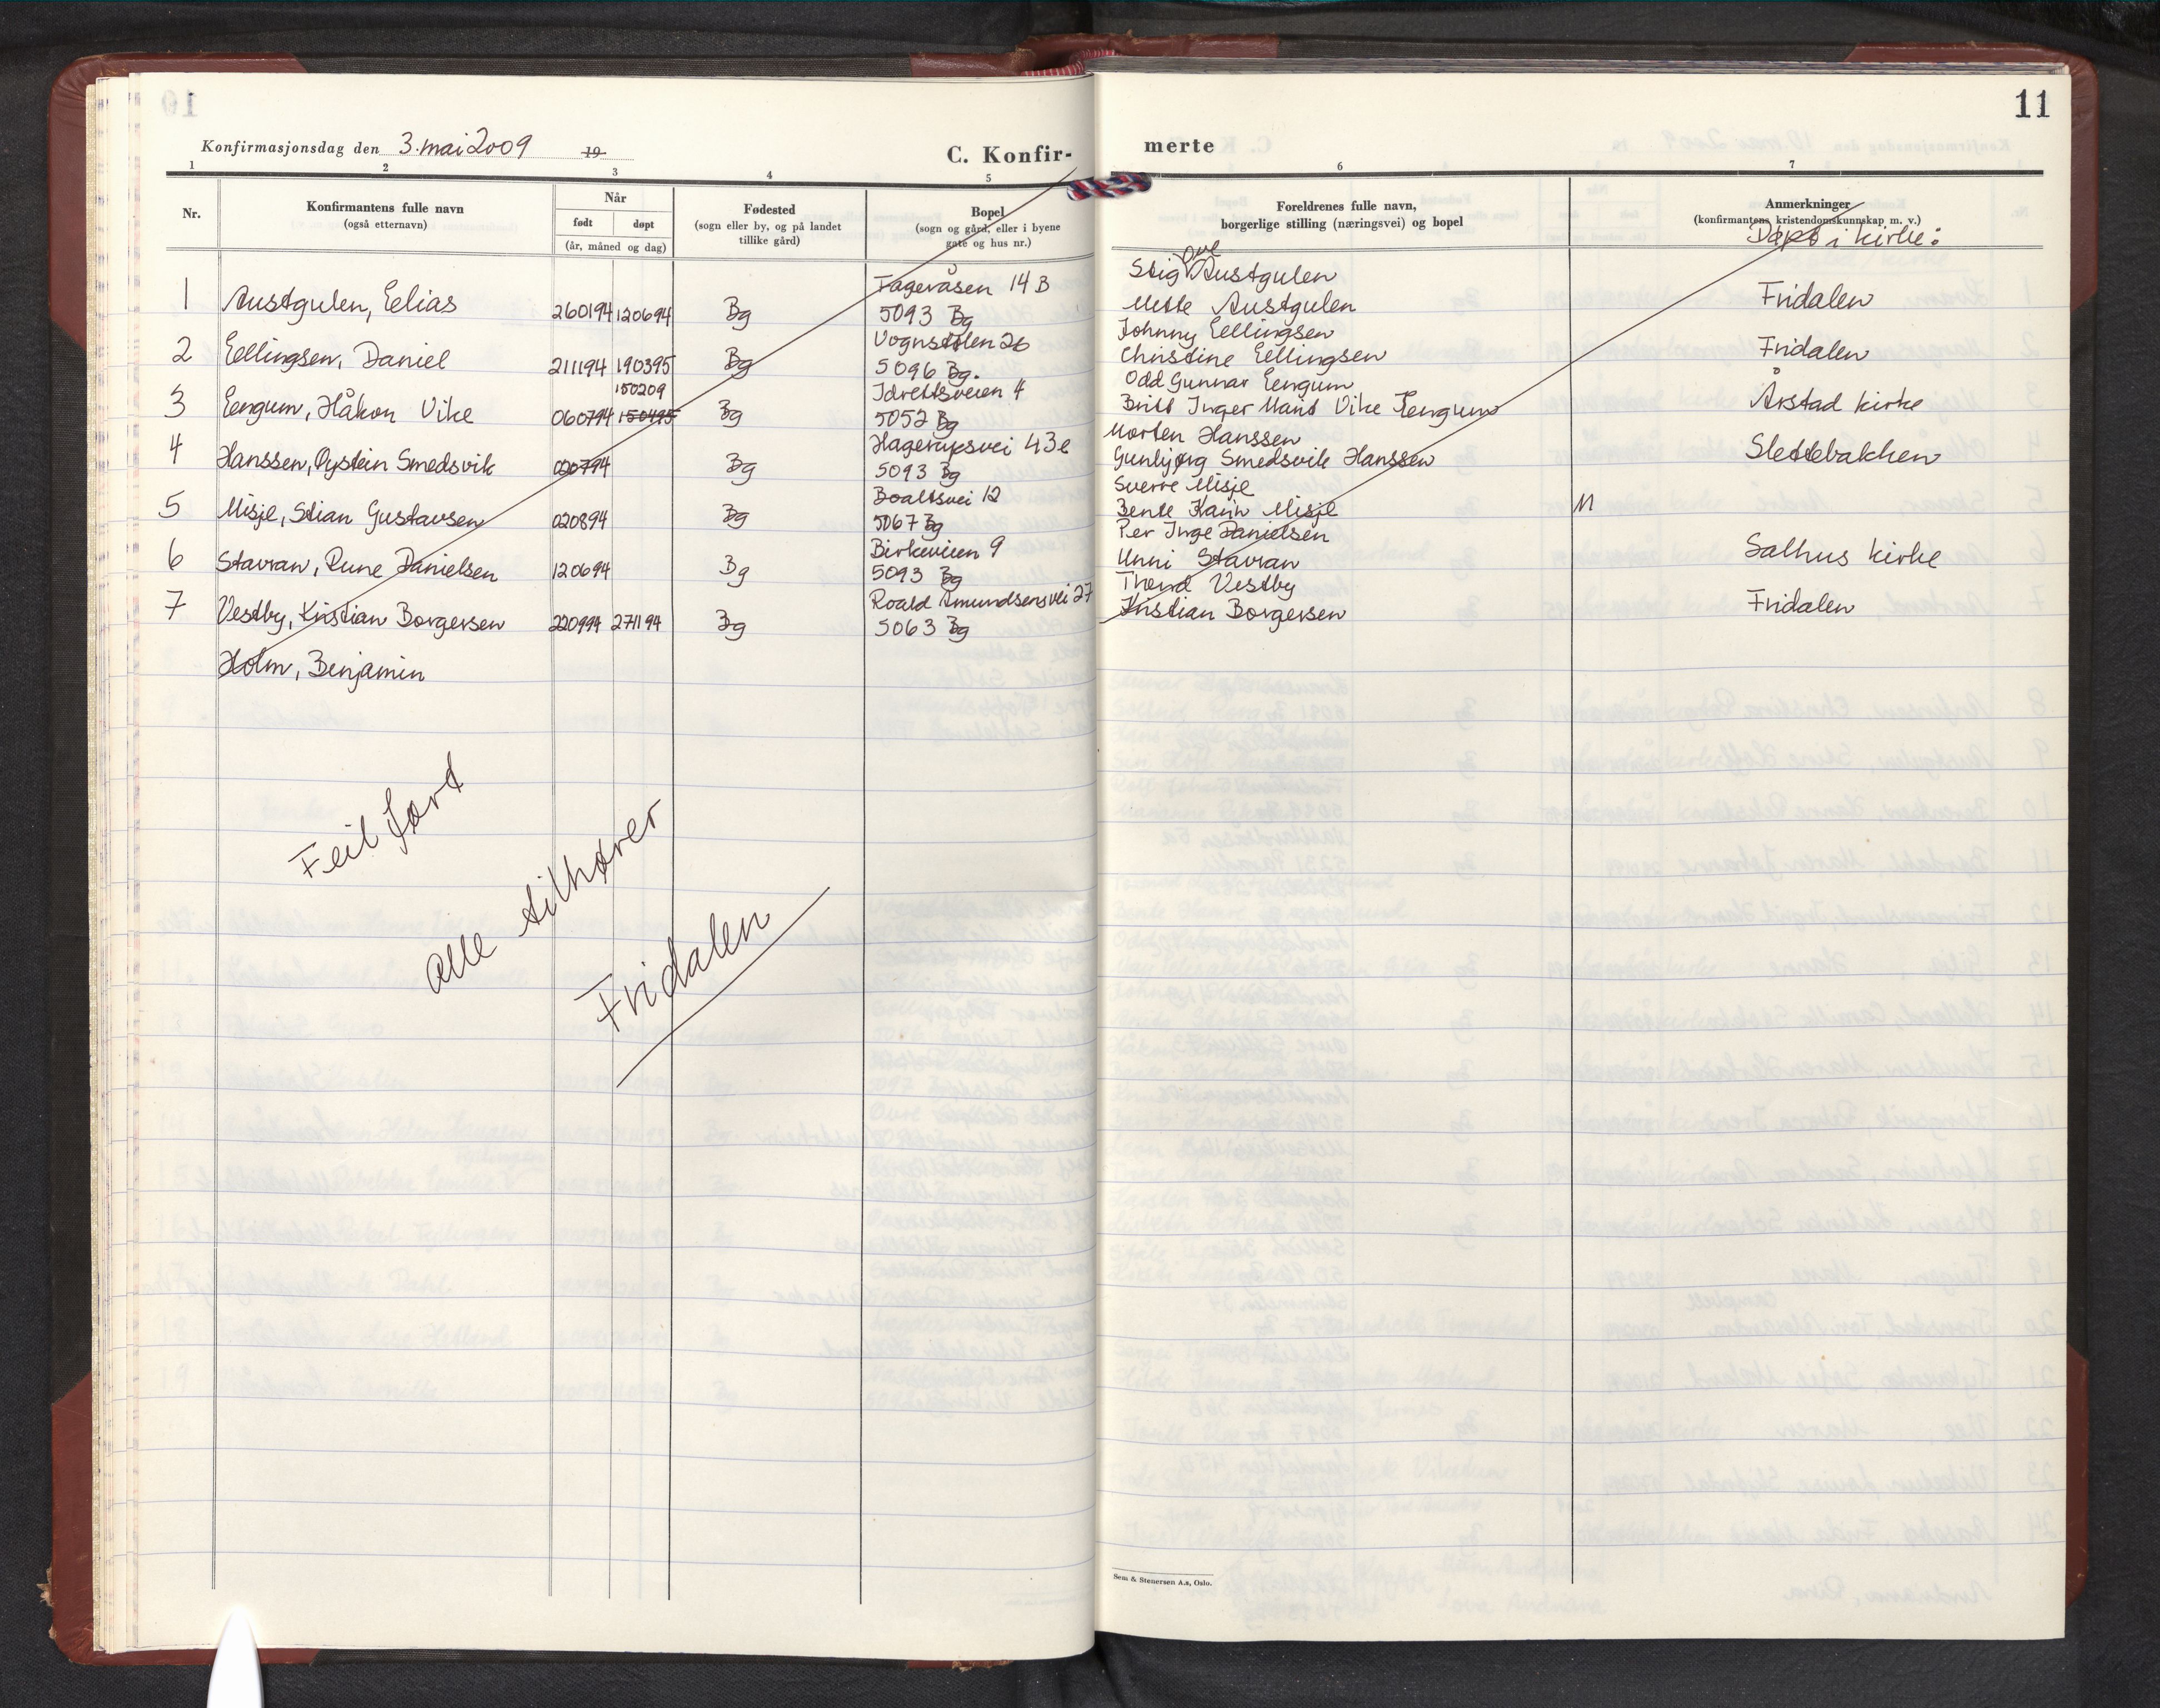 11
Konfirmasjonsdag den 3. mai 2009 19
C. Konfir-
merte
1 2 3 4 5 6 7
Nr.
Konfirmantens fulle navn
(også etternavn)
Når
født døpt
(år, måned og dag)
Fødested
(sogn eller by, og på landet
tillike gård)
Bopel
(sogn og gård, eller i byene
gate og hus nr.)
Foreldrenes fulle navn,
borgerlige stilling (næringsvei) og bopel
Anmerkninger
(konfirmantens kristendomskunnskap m. v.)
Døpt i kirke:
1 Austgulen, Elias 260194 120694 Bg
Fageråsen 14 B
5093 Bg
Stig Ove Austgulen
Mette Austgulen
Fridalen
2 Eellingsen, Daniel 211194 190395 Bg
Vognstølen 26
5096 Bg.
Johnny Eellingsen
Christine Eellingsen
Fridalen
150209
3 Eengum, Håkon Vike 060794 150495 Bg
Idrettsveien 4
5052 Bg
Odd Gunnar Eengum
Britt Inger Marit Vike Eengum
Årstad kirke
4 Hanssen, Øystein Smedsvik 020794 Bg
5093 Bg
Morten Hanssen
Gunbjørg Smedsvik Hanssen
Slettebakken
5 Misje, Stian Gustavsen 020894 Bg
12
5067 Bg
Sverre Misje
Bente Karin Misje
M
6 Stavran, Rune Danielsen 120694 Bg
Birkeveien 9
5093 Bg
Per Inge Danielsen
Unni Stavran
Salhus kirke
7 Vestby, Kristian Borgersen 220994 271194 Bg
Roald Amundsensvei 27
5063 Bg
Trond Vestby
Kristian Borgersen
Fridalen
Holm, Benjamin
Feil ført
alle tilhører
Fridalen
Sem & Stenersen A.s, Oslo.